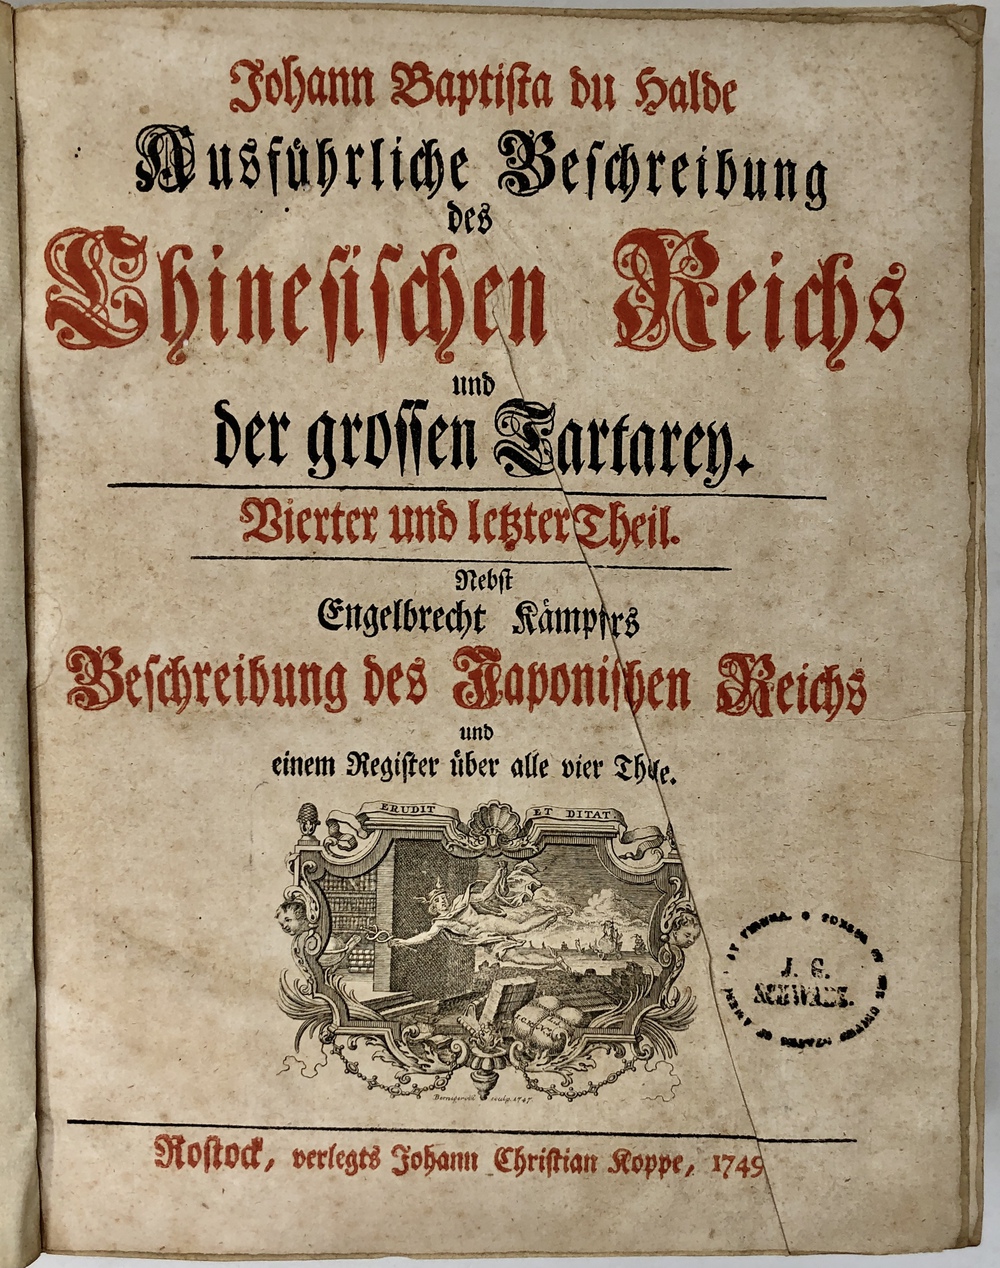 Johann Baptista du Halde
Ausführliche Beschreibung
des
Chinesischen Reichs
und
der grossen Tartarey.
Vierter und letzter Theil.
Nebst
Engelbrecht Kämpfers
Beschreibung des Japonischen Reichs
und
einem Register über alle vier Theile.
ERUDIT ET DITAT
sculp. 1747.
CONSUL OF THE UNITED STATES OF AMERI AT VIENNA.
J. G.
SCHWARZ.
Rostock, verlegts Johann Christian Koppe, 1749